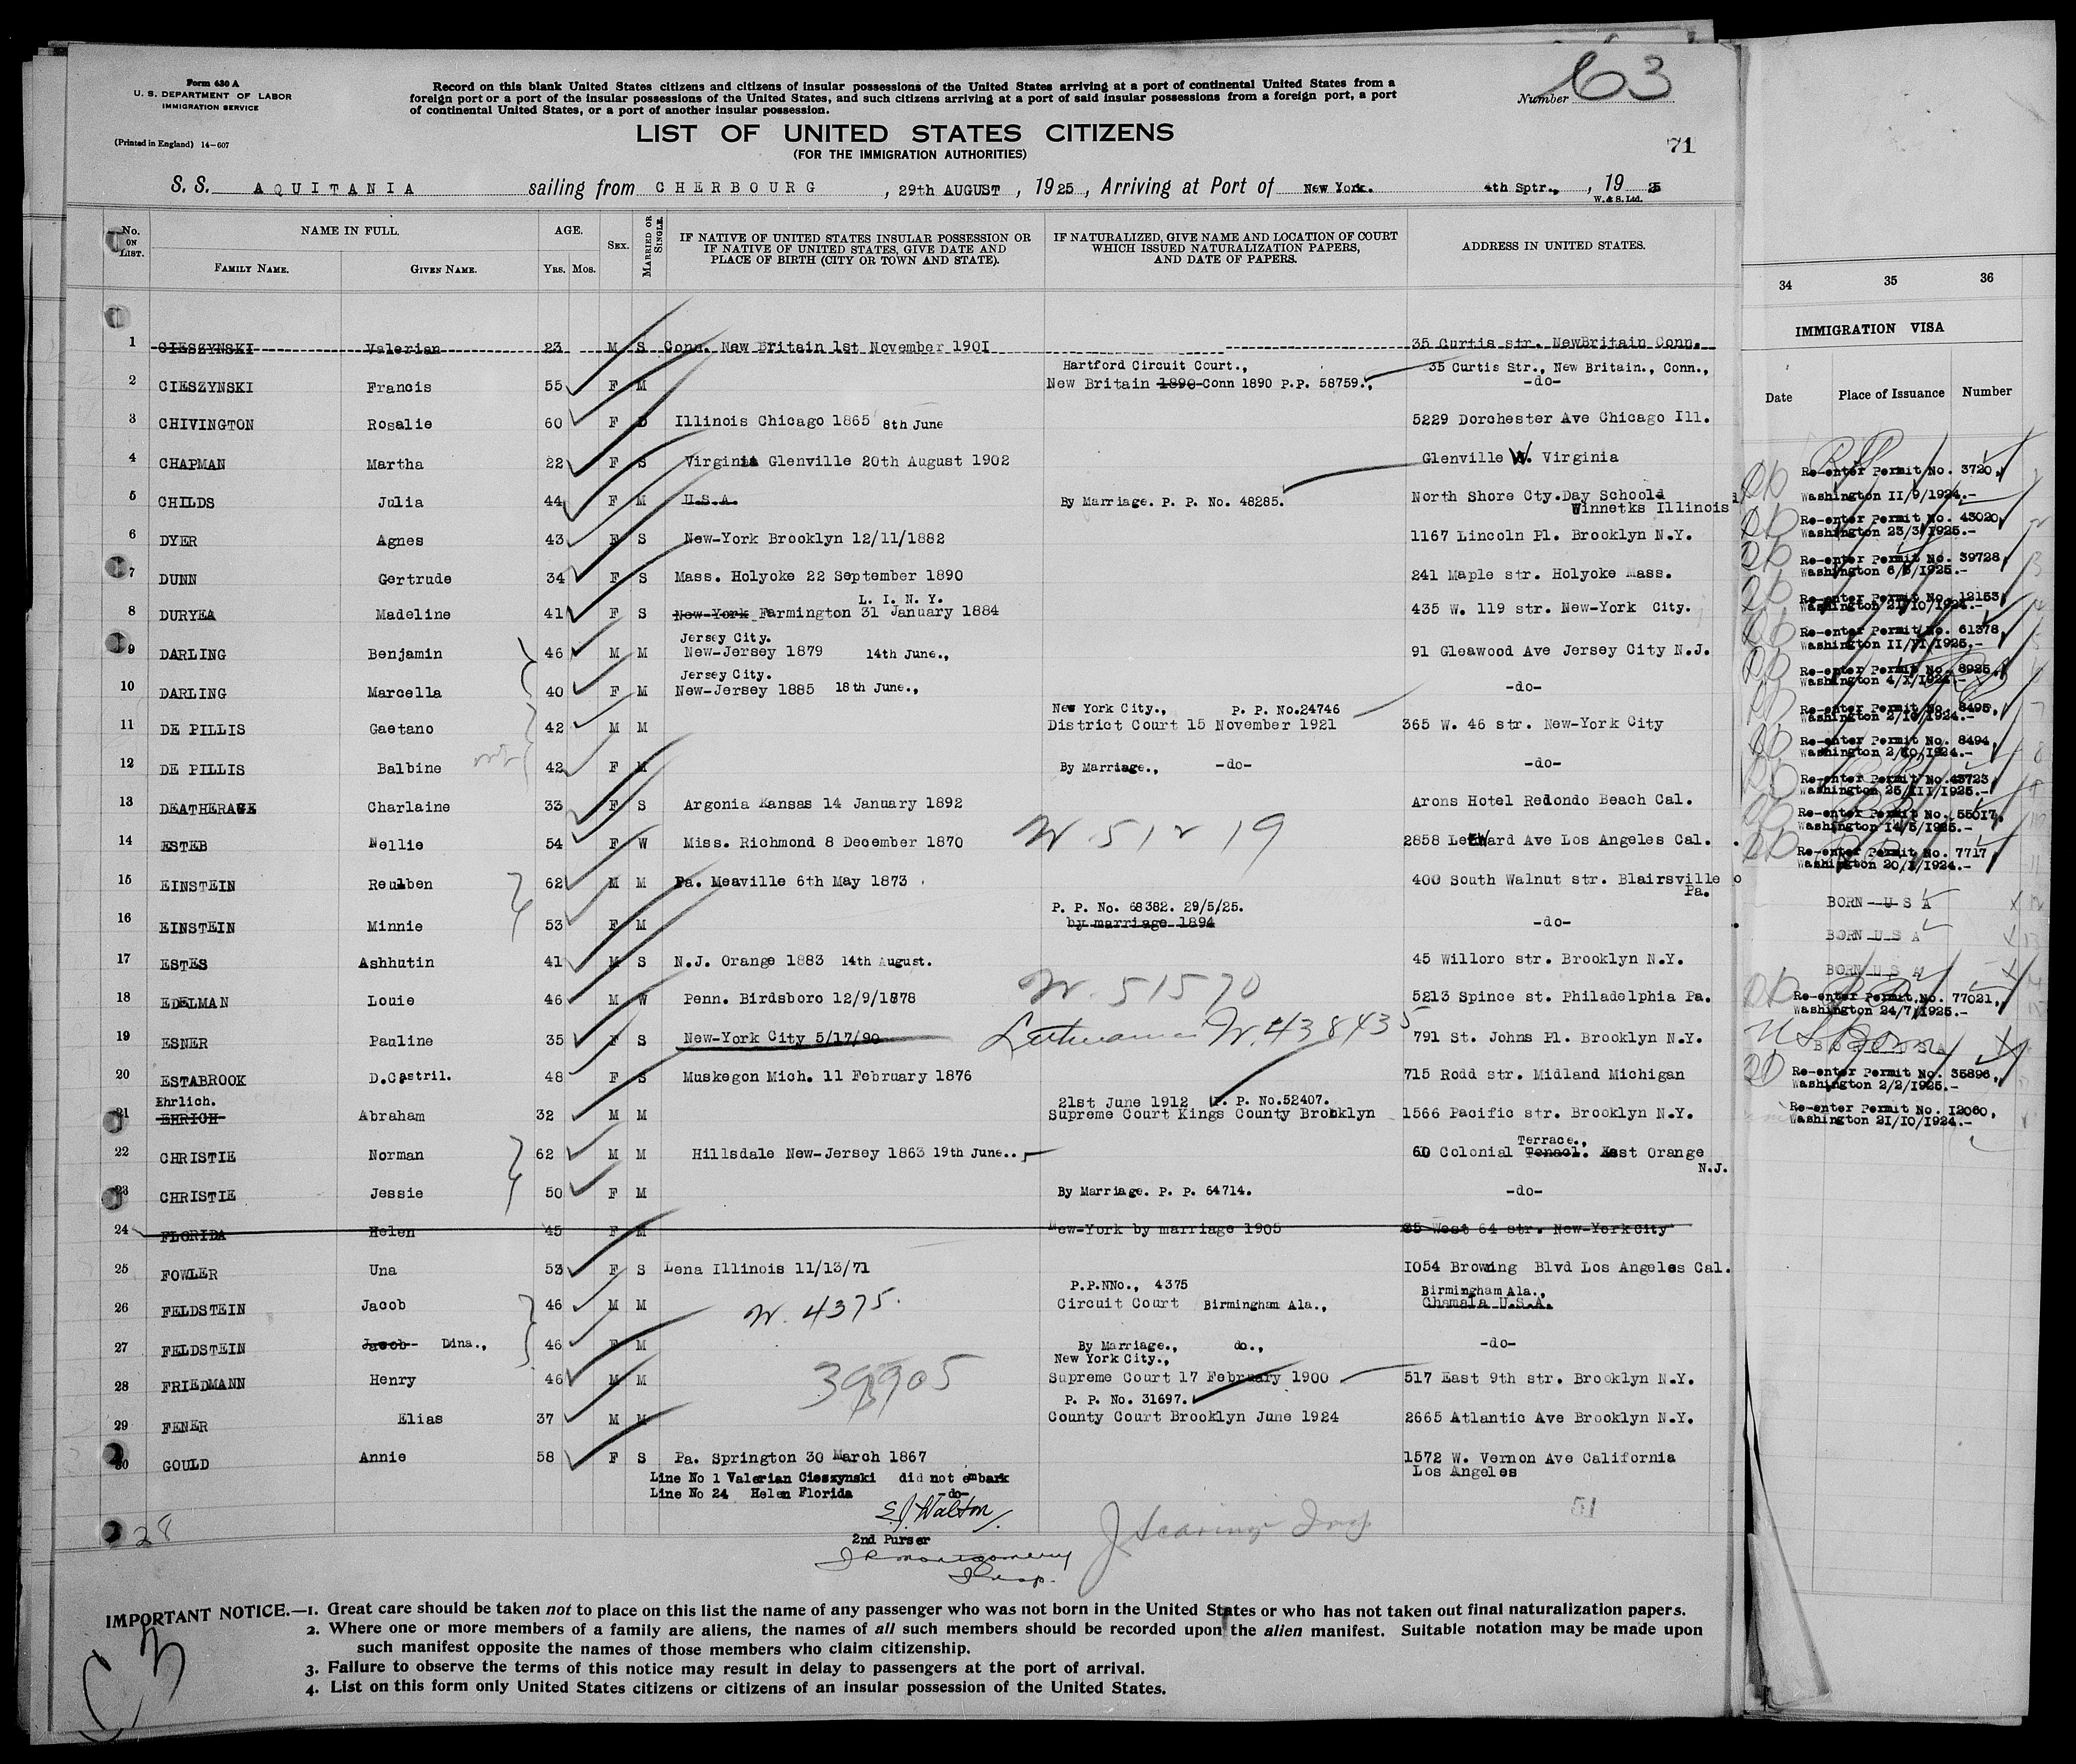 Form 630 A
U. S. DEPARTMENT OF LABOR
IMMIGRATION SERVICE
(Printed in England) 14-607
Record on this blank United States citizens and citizens of insular possessions of the United States arriving at a port of continental United States from a
foreign port or a port of the insular possessions of the United States, and such citizens arriving at a port of said insular possessions from a foreign port, a port
of continental United States, or a port of another insular possession.
Number 63
LIST OF UNITED STATES CITIZENS
(FOR THE IMMIGRATION AUTHORITIES)
71
S. S. AQUITANIA sailing from CHERBOURG, 29th AUGUST, 1925, Arriving at Port of New York. 4th Sptr., 1925
W. & S. Ltd.
No. ON LIST. NAME IN FULL. AGE. SEX. MARRIED OR SINGLE. IF NATIVE OF UNITED STATES INSULAR POSSESSION OR IF NATIVE OF UNITED STATES, GIVE DATE AND PLACE OF BIRTH (CITY OR TOWN AND STATE). IF NATURALIZED, GIVE NAME AND LOCATION OF COURT WHICH ISSUED NATURALIZATION PAPERS, AND DATE OF PAPERS. ADDRESS IN UNITED STATES.
FAMILY NAME. GIVEN NAME. YRS. MOS.
1 CIESZYNSKI Valerian 23 M S Conn. New Britain 1st November 1901 35 Curtis str. NewBritain Conn.
Hartford Circuit Court., 35 Curtis Str., New Britain., Conn.,
2 CIESZYNSKI Francis 55 F M New Britain 1890 Conn 1890 P.P. 58759., -do-
3 CHIVINGTON Rosalie 60 F D Illinois Chicago 1865 8th June 5229 Dorchester Ave Chicago Ill.
4 CHAPMAN Martha 22 F S Virginia Glenville 20th August 1902 Glenville W. Virginia
5 CHILDS Julia 44 F M U.S.A. By Marriage. P. P. No. 48285. North Shore Cty.Day Schoold
Winnetks Illinois
6 DYER Agnes 43 F S New-York Brooklyn 12/11/1882 1167 Lincoln Pl. Brooklyn N.Y.
7 DUNN Gertrude 34 F S Mass. Holyoke 22 September 1890 241 Maple str. Holyoke Mass.
L. I. N. Y.
8 DURYEA Madeline 41 F S New-York Farmington 31 January 1884 435 W. 119 str. New-York City.
Jersey City.
9 DARLING Benjamin 46 M M New-Jersey 1879 14th June., 91 Gleawood Ave Jersey City N.J.
Jersey City.
10 DARLING Marcella 40 F M New-Jersey 1885 18th June., -do-
New York City., P. P. No.24746
11 DE PILLIS Gaetano 42 M M District Court 15 November 1921 365 W. 46 str. New-York City
12 DE PILLIS Balbine 42 F M By Marriage., -do- -do-
13 DEATHERAGE Charlaine 33 F S Argonia Kansas 14 January 1892 Arons Hotel Redondo Beach Cal.
14 ESTEB Nellie 54 F W Miss. Richmond 8 December 1870 2858 Ave Los Angeles Cal.
15 EINSTEIN Reulben 62 M M Pa. Meaville 6th May 1873 400 South Walnut str. Blairsville
Pa.
P. P. No. 68382. 29/5/25.
16 EINSTEIN Minnie 53 F M by marriage 1894 -do-
17 ESTES Ashhutin 41 M S N.J. Orange 1883 14th August. 45 Willoro str. Brooklyn N.Y.
W. 51570
18 EDELMAN Louie 46 M W Penn. Birdsboro 12/9/1878 5213 Spince st. Philadelphia Pa.
19 ESNER Pauline 35 F S New-York City 5/17/90 W. 438435 791 St. Johns Pl. Brooklyn N.Y.
20 ESTABROOK D.Castril. 48 F S Muskegon Mich. 11 February 1876 715 Rodd str. Midland Michigan
Ehrlich. 21st June 1912 P. P. No.52407.
21 EHRICH Abraham 32 M M Supreme Court Kings County Brooklyn 1566 Pacific str. Brooklyn N.Y.
Terrace.,
22 CHRISTIE Norman 62 M M Hillsdale New-Jersey 1863 19th June.. 60 Colonial Tenacl. East Orange
N.J.
23 CHRISTIE Jessie 50 F M By Marriage. P. P. 64714. -do-
24 FLORIDA Helen 45 F M New-York by marriage 1905 35 West 64 str. New-York City
25 FOWLER Una 53 F S Lena Illinois 11/13/71 1054 Browning Blvd Los Angeles Cal.
P.P.NNo., 4375 Birmingham Ala.,
26 FELDSTEIN Jacob 46 M M W. 4375. Circuit Court Birmingham Ala., Chamala U.S.A.
27 FELDSTEIN Jacob Dina., 46 F M By Marriage., do., -do-
New York City.,
28 FRIEDMANN Henry 46 M M Supreme Court 17 February 1900 517 East 9th str. Brooklyn N.Y.
P. P. No. 31697.
29 FENER Elias 37 M M County Court Brooklyn June 1924 2665 Atlantic Ave Brooklyn N.Y.
30 GOULD Annie 58 F S Pa. Springton 30 March 1867 1572 W. Vernon Ave California
Los Angeles
Line No 1 Valerian Cieszynski did not embark
Line No 24 Helen Florida -do-
E. J. Walton
2nd Purser
28
51
J R Montgomery
Insp.
IMPORTANT NOTICE.—1. Great care should be taken not to place on this list the name of any passenger who was not born in the United States or who has not taken out final naturalization papers.
2. Where one or more members of a family are aliens, the names of all such members should be recorded upon the alien manifest. Suitable notation may be made upon
such manifest opposite the names of those members who claim citizenship.
3. Failure to observe the terms of this notice may result in delay to passengers at the port of arrival.
4. List on this form only United States citizens or citizens of an insular possession of the United States.
34 35 36
IMMIGRATION VISA
Date Place of Issuance Number
Re-enter Permit No. 3720,
Washington II/9/1924.-
Re-enter Permit No. 43020,
Washington 23/3/1925.-
Re-enter Permit No. 39728,
Washington 6/3/1925.-
Re-enter Permit No. 12153,
Washington 21/10/1924.-
Re-enter Permit No. 61378,
Washington II/VI/1925.-
Re-enter Permit No. 8925,
Washington 4/X/1924.-
Re-enter Permit No. 8495,
Washington 2/10/1924.-
Re-enter Permit No. 8494,
Washington 2/10/1924.-
Re-enter Permit No.43723,
Washington 25/III/1925.-
Re-enter Permit No. 55017,
Washington 14/5/1925.-
Re-enter Permit No. 7717,
Washington 20/X/1924.-
BORN U S A
BORN U S A
BORN U S A
Re-enter Permit No. 77021,
Washington 24/7/1925.-
US Born
BORN USA
Re-enter Permit No. 35896,
Washington 2/2/1925.-
Re-enter Permit No. I2060,
Washington 21/10/1924.-